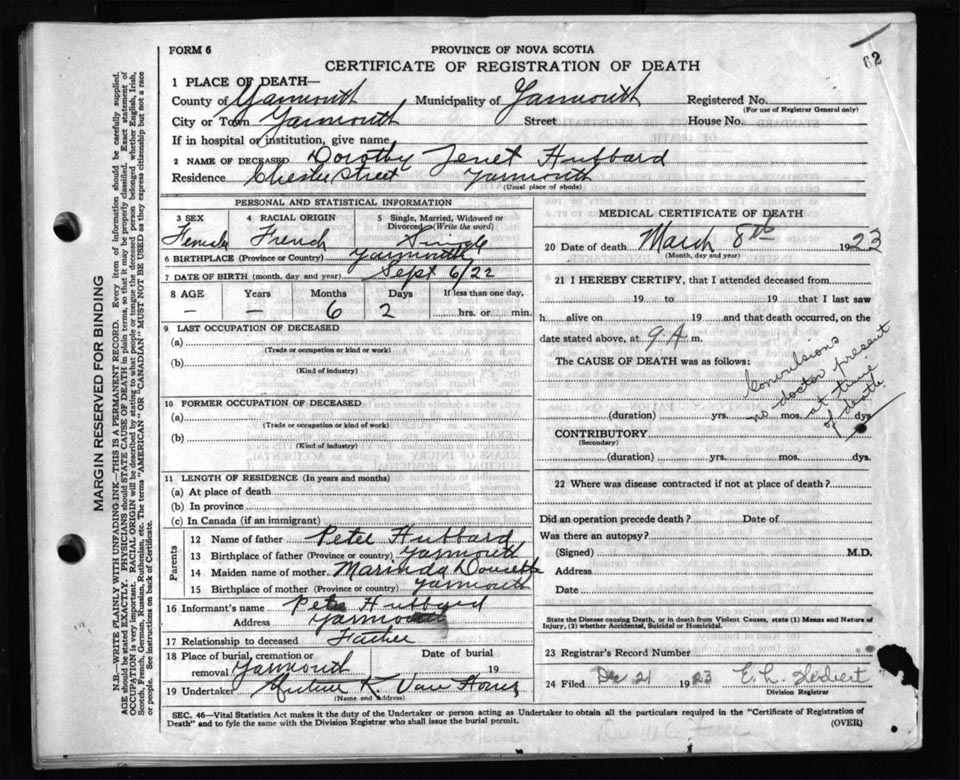 62
FORM 6
PROVINCE OF NOVA SCOTIA
CERTIFICATE OF REGISTRATION OF DEATH
1 PLACE OF DEATH—
County of Yarmouth Municipality of Yarmouth Registered No.
(For use of Registrar General only)
City or Town Yarmouth Street House No.
If in hospital or institution, give name
2 NAME OF DECEASED Dorothy Jenet Hubbard
Residence Chester Street Yarmouth
(Usual place of abode)
PERSONAL AND STATISTICAL INFORMATION
3 SEX 4 RACIAL ORIGIN 5 Single, Married, Widowed or
Divorced (Write the word)
Female French Single
6 BIRTHPLACE (Province or Country) Yarmouth
7 DATE OF BIRTH (month, day and year) Sept 6/22
8 AGE Years Months Days If less than one day,
— — 6 2 hrs. or min.
9 LAST OCCUPATION OF DECEASED
(a)
(Trade or occupation or kind or work)
(b)
(Kind of industry)
10 FORMER OCCUPATION OF DECEASED
(a)
(Trade or occupation or kind of work)
(b)
(Kind of industry)
11 LENGTH OF RESIDENCE (In years and months)
(a) At place of death
(b) In province
(c) In Canada (if an immigrant)
Parents
12 Name of father Peter Hubbard
13 Birthplace of father (Province or country) Yarmouth
14 Maiden name of mother Marinda Doucette
15 Birthplace of mother (Province or country) Yarmouth
16 Informant's name Peter Hubbard
Address Yarmouth
17 Relationship to deceased Father
18 Place of burial, cremation or Date of burial
removal Yarmouth 19
19 Undertaker K. Van Horne
(Name and Address)
MEDICAL CERTIFICATE OF DEATH
20 Date of death March 8th 1923
(Month, day and year)
21 I HEREBY CERTIFY, that I attended deceased from
19 to 19 that I last saw
h alive on 19 and that death occurred, on the
date stated above, at 9 A m.
The CAUSE OF DEATH was as follows:
Convulsions
no doctor present
at time
of death
(duration) yrs. mos. dys.
CONTRIBUTORY
(Secondary)
(duration) yrs. mos. dys.
22 Where was disease contracted if not at place of death?
Did an operation precede death? Date of
Was there an autopsy?
(Signed) M.D.
Address
Date
State the Disease causing Death, or in death from Violent Causes, state (1) Means and Nature of
Injury, (2) whether Accidental, Suicidal or Homicidal.
23 Registrar's Record Number
24 Filed Dec 21 1923 E. L. Herbert
Division Registrar
SEC. 46—Vital Statistics Act makes it the duty of the Undertaker or person acting as Undertaker to obtain all the particulars required in the "Certificate of Registration of
Death" and to fyle the same with the Division Registrar who shall issue the burial permit.
(OVER)
MARGIN RESERVED FOR BINDING
N.B.—WRITE PLAINLY WITH UNFADING INK—THIS IS A PERMANENT RECORD. Every item of information should be carefully supplied.
AGE should be stated EXACTLY. PHYSICIANS should STATE CAUSE OF DEATH in plain terms, so that it may be properly classified. Exact statement of
OCCUPATION is very important. RACIAL ORIGIN will be described by stating to what people or tongue the deceased person belonged whether English, Irish,
Scotch, French, German, Russian, Ruthenian, etc. The terms "AMERICAN" OR "CANADIAN" MUST NOT BE USED as they express citizenship but not a race
or people. See instructions on back of Certificate.